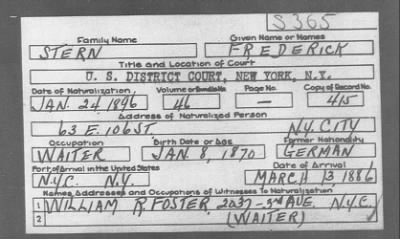 S365
Family Name Given Name or Names
STERN FREDERICK
Title and Location of Court
U. S. DISTRICT COURT, NEW YORK, N.Y.
Date of Naturalization Volume or Bundle No. Page No. Copy of Record No.
JAN. 24 1896 46 — 415
Address of Naturalized Person
63 E. 106 ST. N.Y. CITY
Occupation Birth Date or Age Former Nationality
WAITER JAN. 8, 1870 GERMAN
Port of Arrival in the United States Date of Arrival
N.Y.C. N.Y. MARCH 13 1886
Names, Addresses and Occupations of Witnesses to Naturalization
1 WILLIAM R FOSTER 2037 - 3RD AVE. N.Y.C.
2 (WAITER)